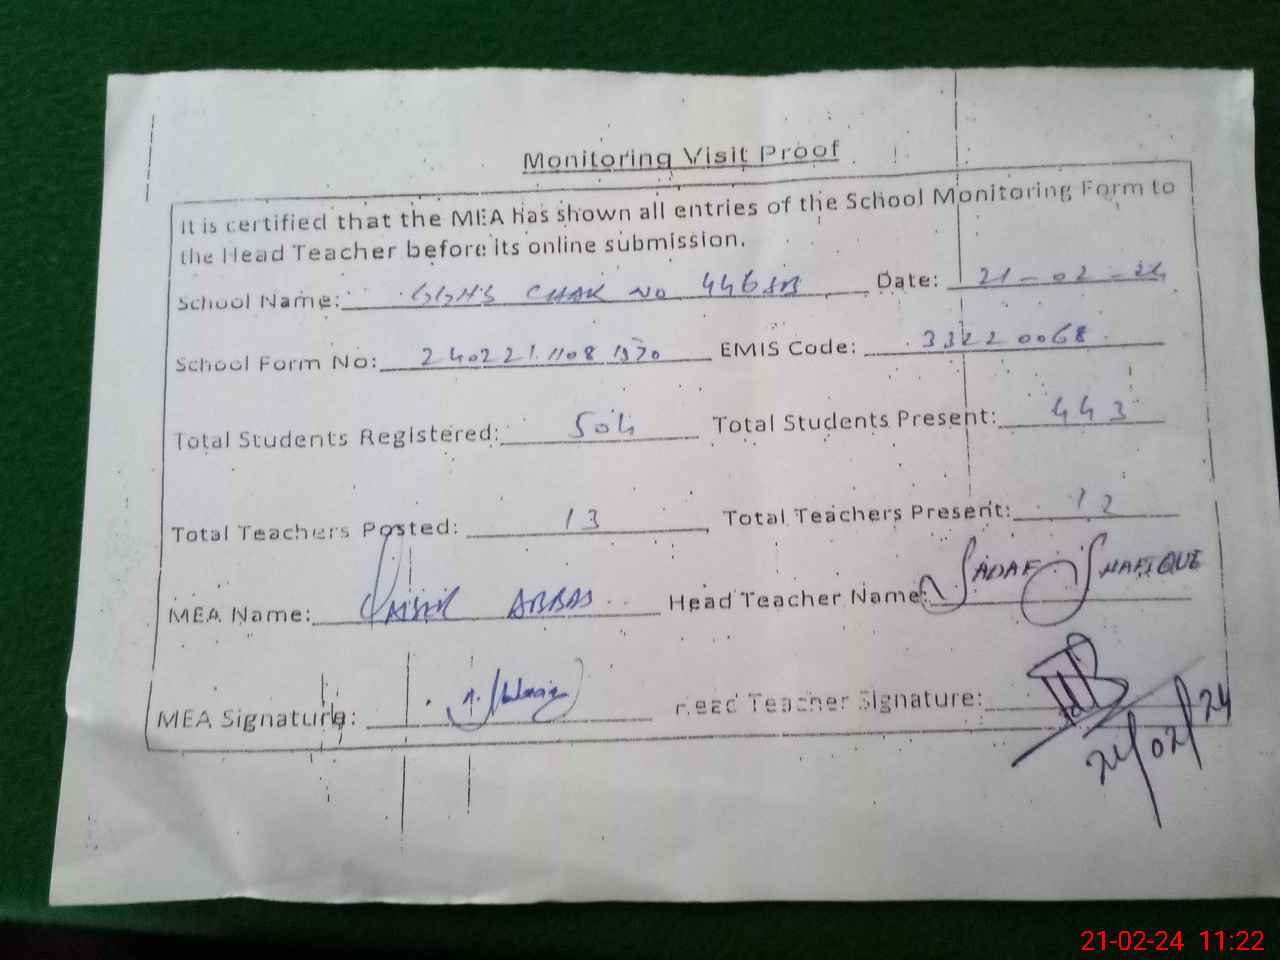 Monitoring Visit Proof
It is certified that the MEA has shown all entries of the School Monitoring Form to
the Head Teacher before its online submission.
School Name: GGHS CHAK NO 446 JB Date: 21-02-24
School Form No: 2402211108 1370 EMIS Code: 33220068
Total Students Registered: 504 Total Students Present: 443
Total Teachers Posted: 13 Total Teachers Present: 12
MEA Name: QAISER ABBAS Head Teacher Name: SADAF SHAFIQUE
MEA Signature: Head Teacher Signature:
21/02/24
21-02-24 11:22